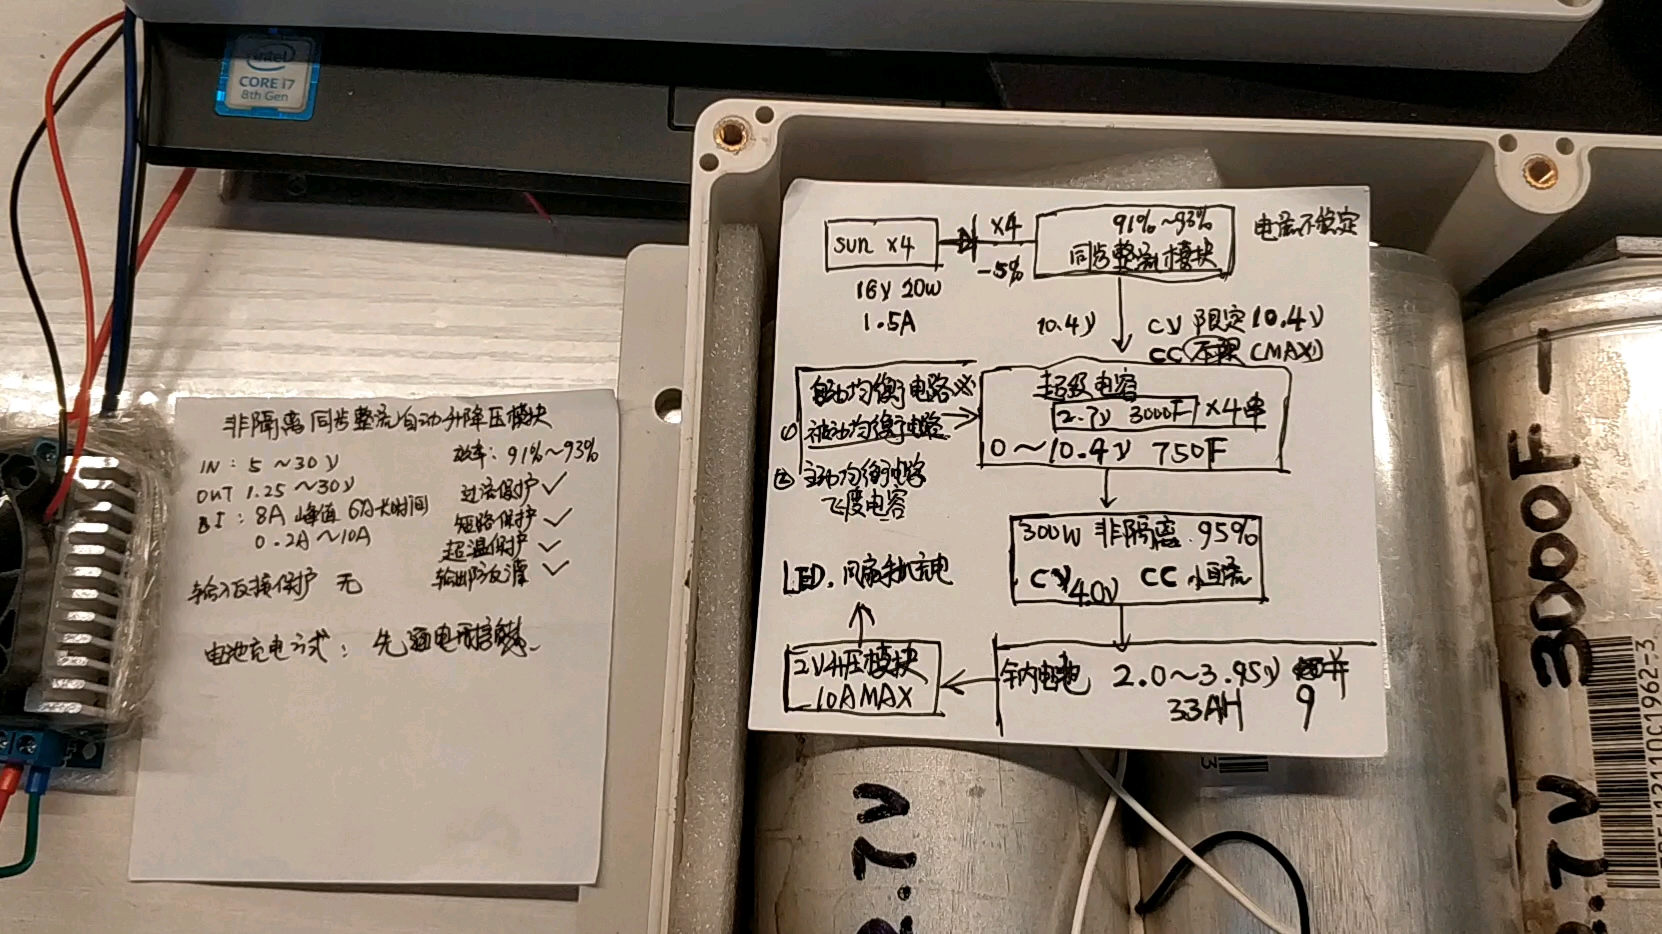 intel
CORE i7
8th Gen
非隔离同步整流自动升降压模块
IN: 5～30V
OUT 1.25～30V
8A 峰值 6A长时间
0.2A～10A
输入反接保护 无
效率: 91%～93%
过流保护✓
短路保护✓
超温保护✓
输出防反灌✓
电池充电方式: 先
sun ×4
18V 20W
1.5A
×4
-5%
91%～93%
同步整流模块
电流不稳定
10.4V
CV 限定10.4V
CC 不限 (MAX)
自动均衡电路
① 被动均衡电路
② 主动均衡电路
飞度电容
超级电容
2.7V 3000F ×4串
0～10.4V 750F
300W 非隔离 95%
CV 4.0V CC 恒流
2.0～3.95V
33AH 9
升压模块
10A MAX
LED, 风扇手机充电
2.7V
2.7V 3000F -